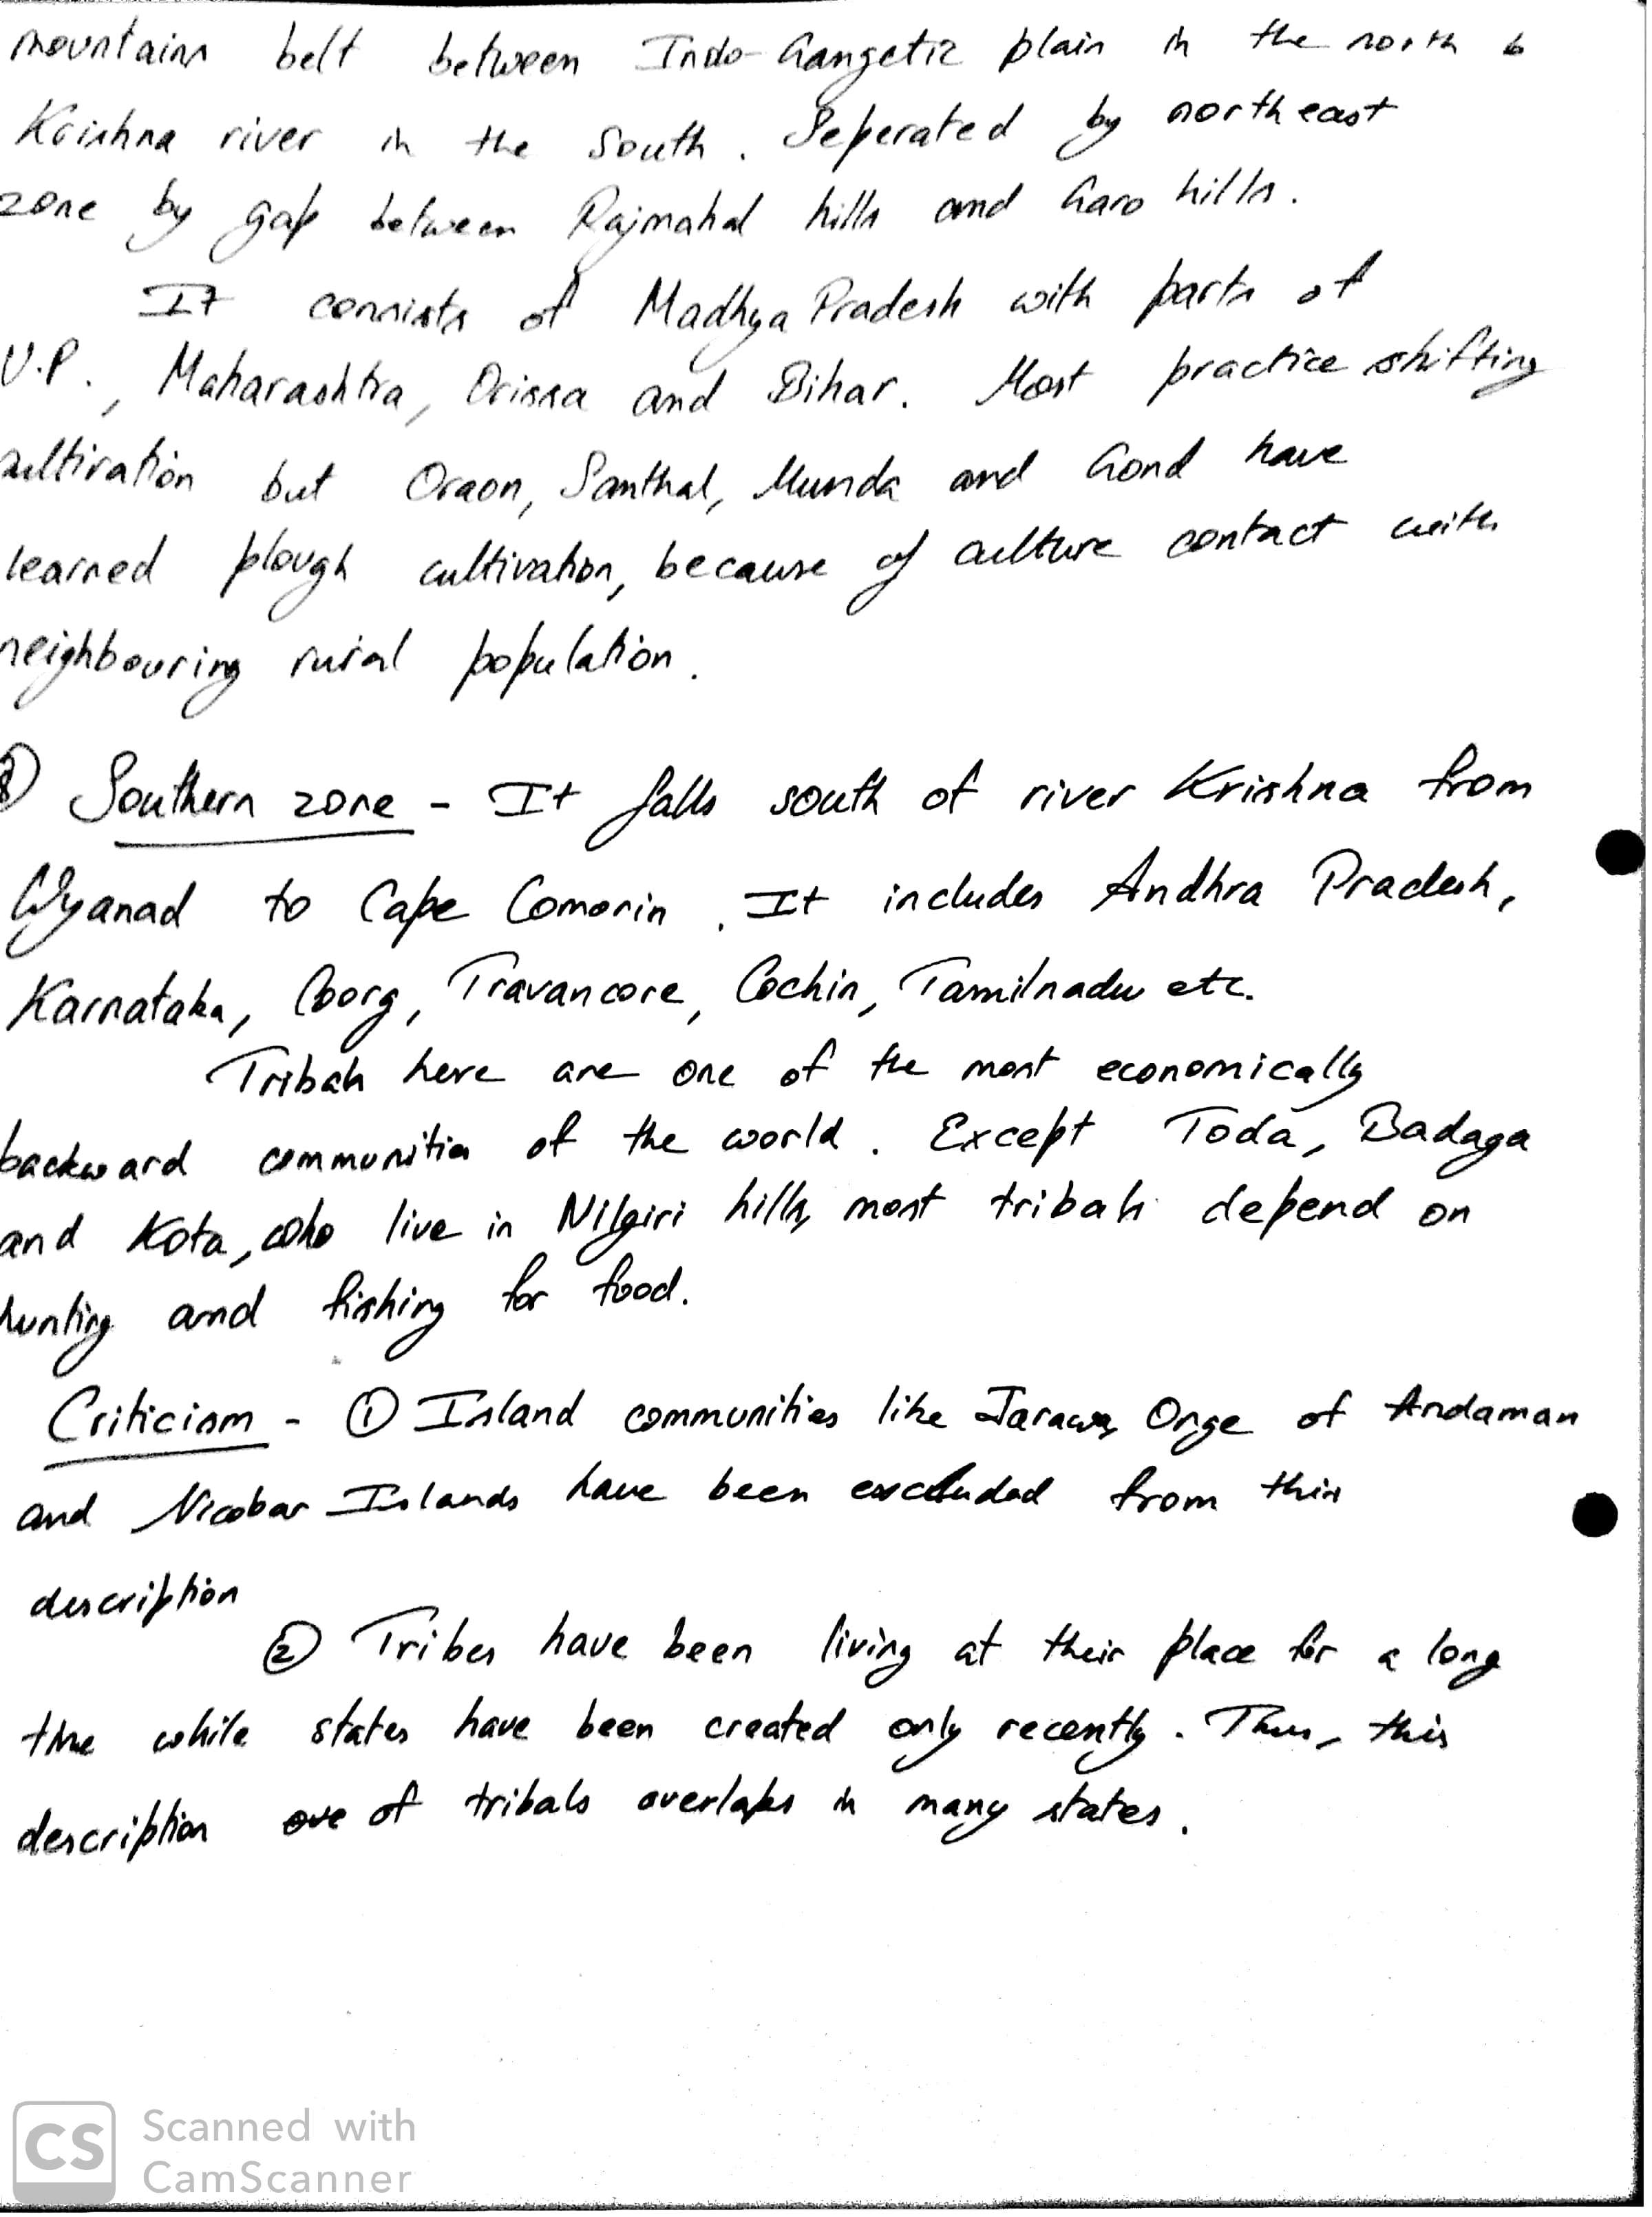 mountains belt between Indo-Gangetic plain in the north &
Krishna river in the south. Seperated by northeast
zone by gap between Rajmahal hills and Garo hills.
It consists of Madhya Pradesh with parts of
U.P., Maharashtra, Orissa and Bihar. Most practice shifting
cultivation but Oraon, Santhal, Munda and Gond have
learned plough cultivation, because of culture contact with
neighbouring rural population.
Southern zone - It falls south of river Krishna from
Wyanad to Cape Comorin. It includes Andhra Pradesh,
Karnataka, Coorg, Travancore, Cochin, Tamilnadu etc.
Tribals here are one of the most economically
backward communities of the world. Except Toda, Badaga
and Kota, who live in Nilgiri hills, most tribals depend on
hunting and fishing for food.
Criticism - ① Island communities like Jarawa, Onge of Andaman
and Nicobar Islands have been excluded from this
description
② Tribes have been living at their place for a long
time while states have been created only recently. Thus, this
description of tribals overlaps in many states.
CS Scanned with
CamScanner